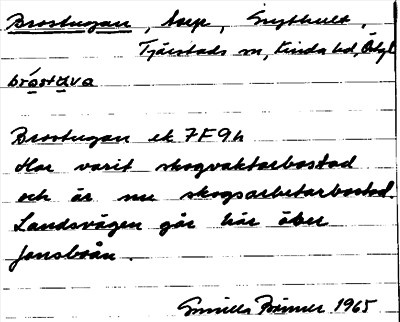 Brostugan, torp, Smedhult,
Tjärstads sn, Kinda hd, Östgl
bróstùva
Brostugan ek 7F9h
Har varit skogvaktarbostad
och är nu skogsarbetarbostad.
Landsvägen går här över
Jonsboån.
Gunilla 1965